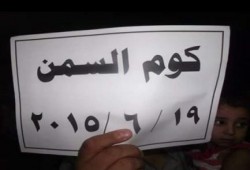 كوم السمن
١٩ / ٦ / ٢٠١٥